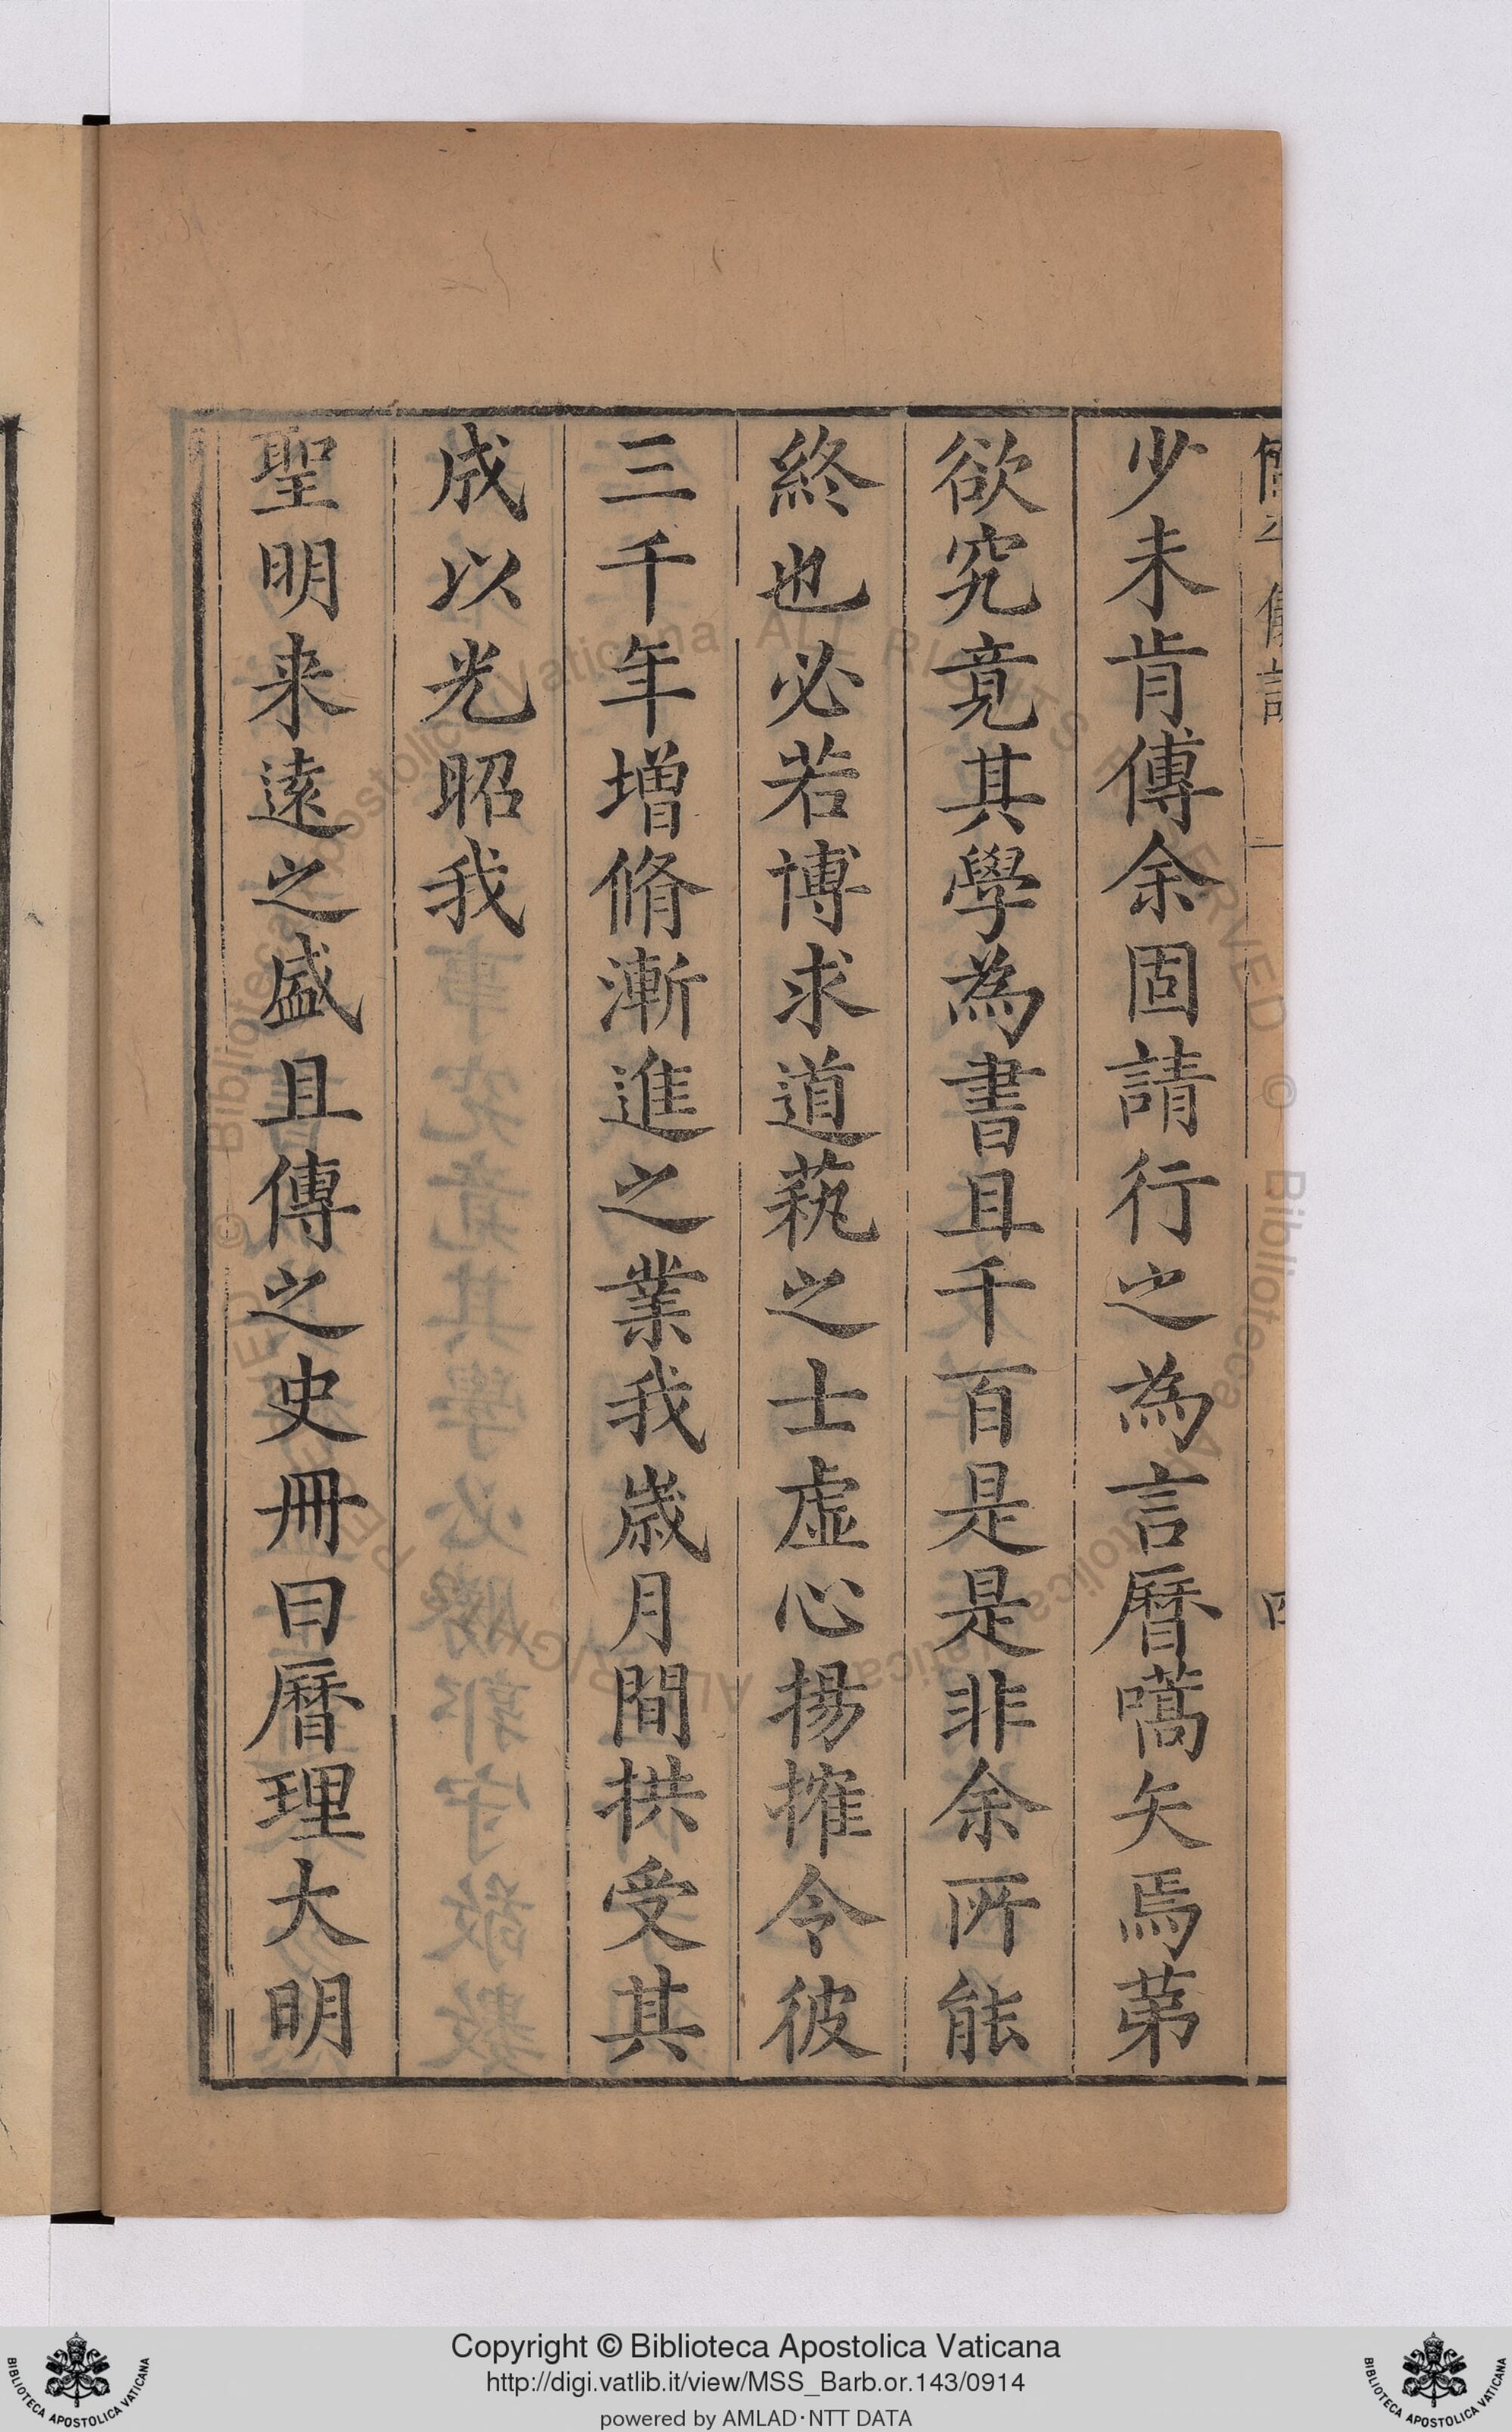 少未肯傳余固請行之為言曆嚆矢焉苐
欲究竟其學為書且千百是是非余所能
終也必若博求道蓺之士虛心揚搉令彼
三千年增脩漸進之業我歲月間拱受其
成以光昭我
聖明来遠之盛且傳之史冊曰曆理大明
Copyright © Biblioteca Apostolica Vaticana
http://digi.vatlib.it/view/MSS_Barb.or.143/0914
powered by AMLAD·NTT DATA
BIBLIOTECA APOSTOLICA VATICANA
BIBLIOTECA APOSTOLICA VATICANA